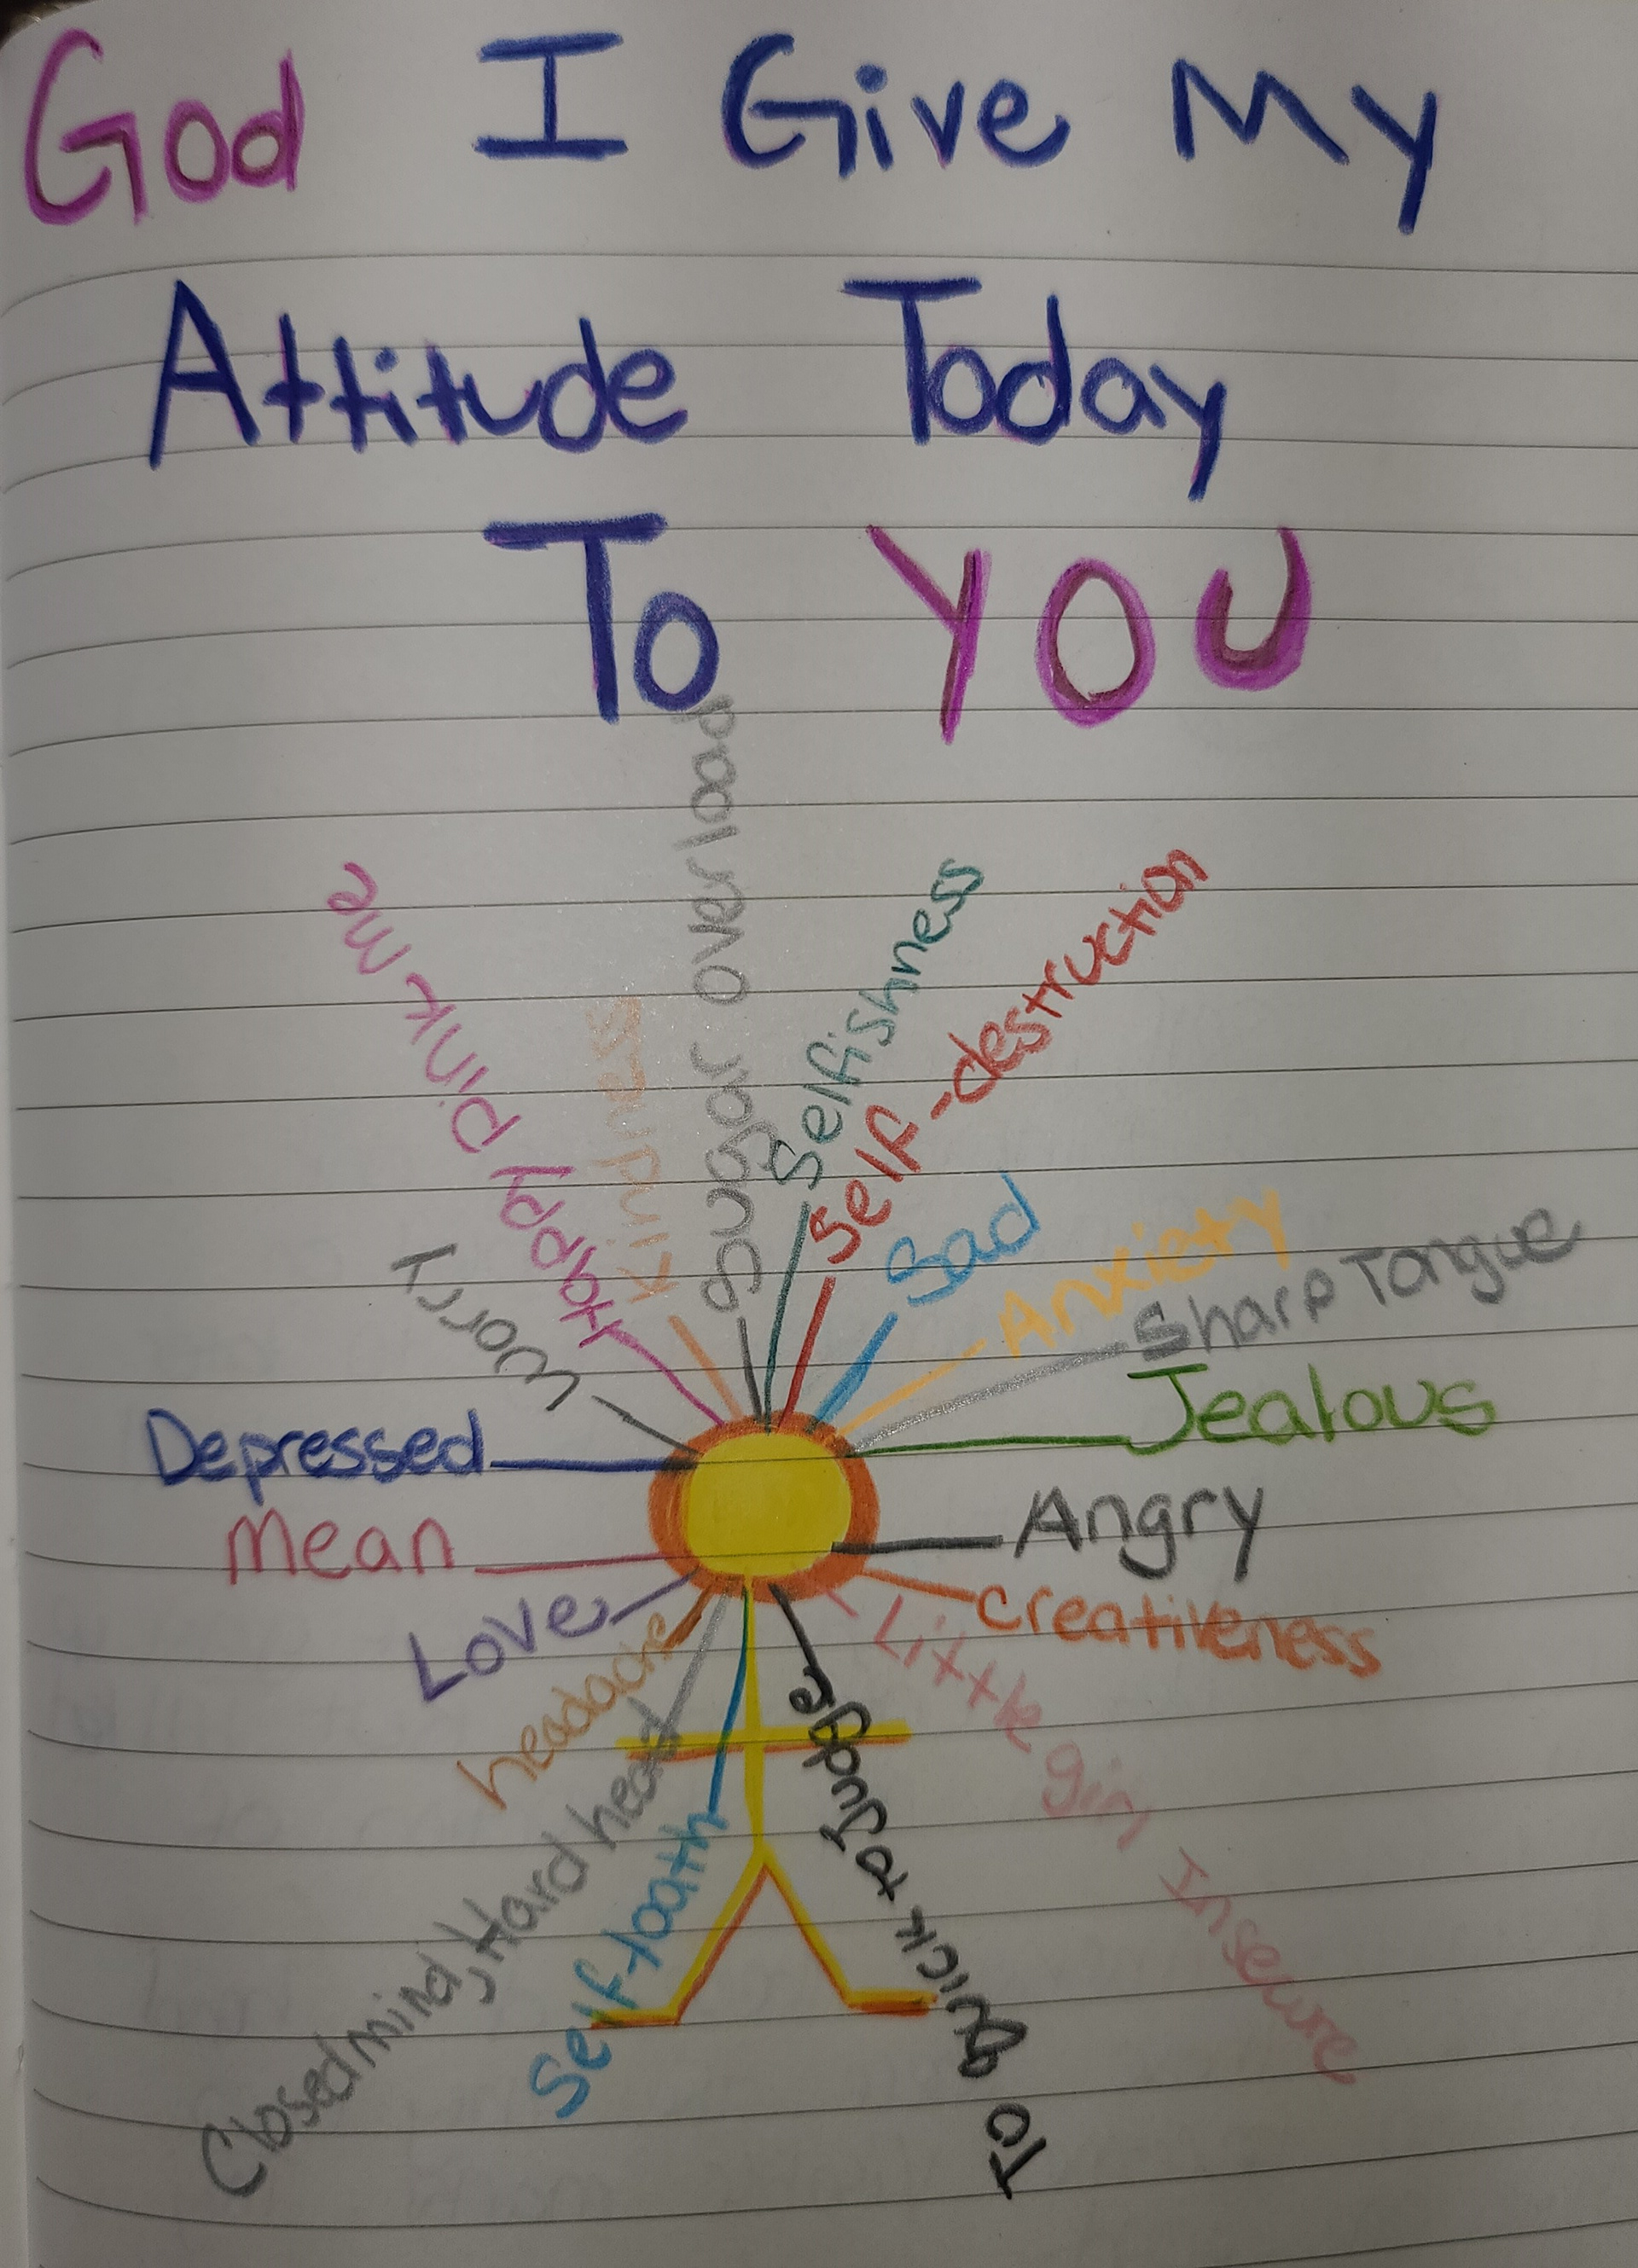 God I Give My
Attitude Today
To YOU
Worry
Happy pink me
Kindness
Cougar overload
Selfishness
Self-destruction
Sad
Anxiety
Sharp Tongue
Jealous
Depressed
Mean
Angry
Love
Creativeness
headache
Little girl Insecure
Closed mind, Hard head
Self-loath
To Quick to Judge